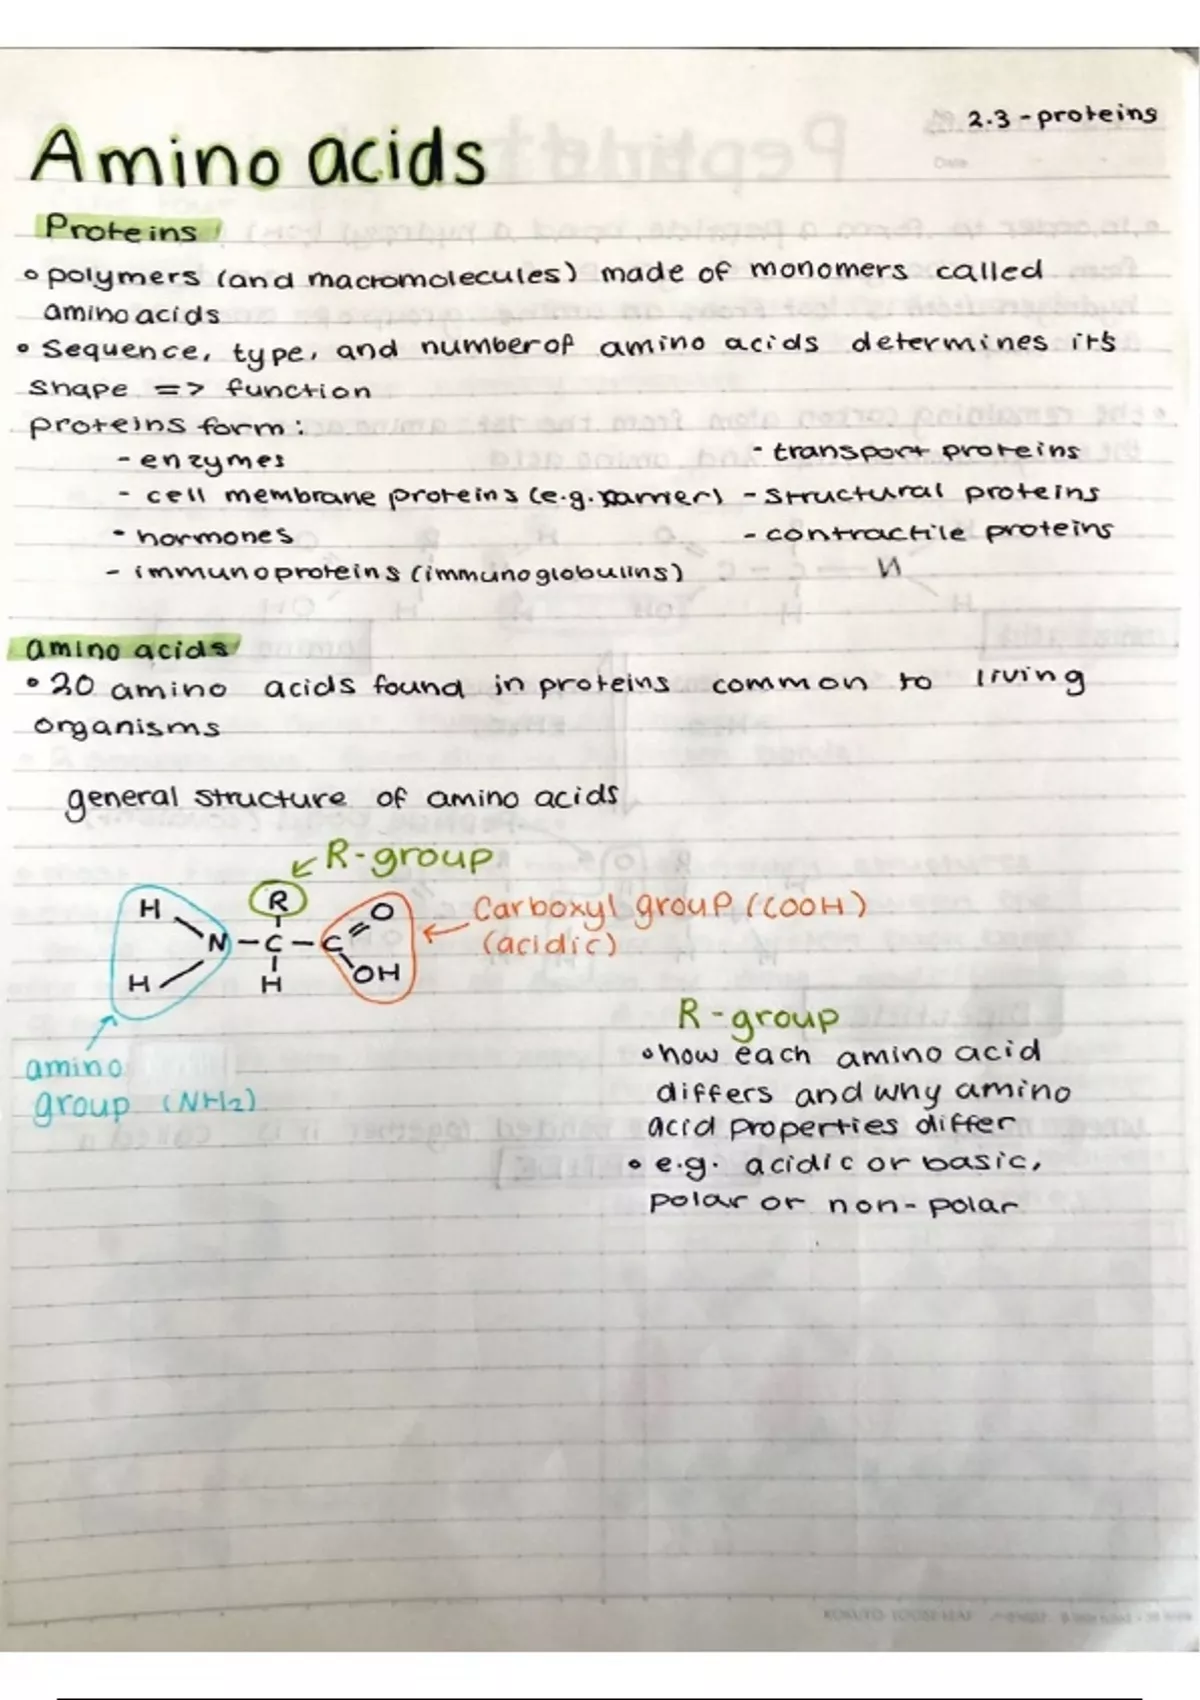 2.3 - proteins
Date
Amino acids
Proteins
• polymers (and macromolecules) made of monomers called
amino acids
• Sequence, type, and number of amino acids determines it's
shape => function
proteins form:
- enzymes
- transport proteins
- cell membrane proteins (e.g. carrier) - structural proteins
- hormones
- contractile proteins
- immunoproteins (immunoglobulins)
amino acids
• 20 amino acids found in proteins common to living
organisms
general structure of amino acids
R-group
H
R
O
Carboxyl group (COOH)
N - C - C
(acidic)
H
H
OH
amino
group (NH2)
R-group
• how each amino acid
differs and why amino
acid properties differ
• e.g. acidic or basic,
polar or non-polar